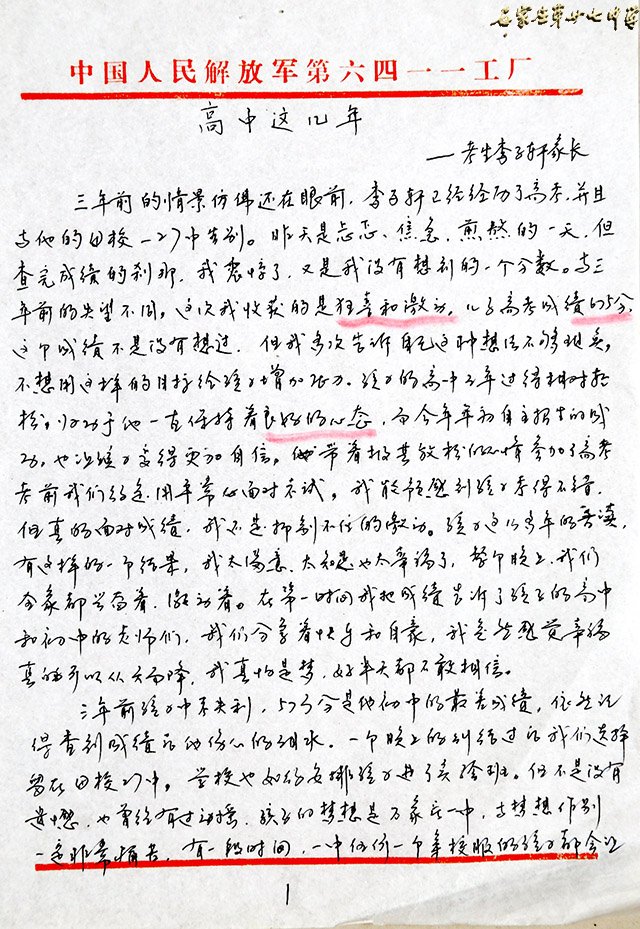 石家庄第廿七中学
中国人民解放军第六四一一工厂
高中这几年
—考生李子轩家长
三年前的情景仿佛还在眼前，李子轩已经经历了高考，并且
与他的母校—27中告别。昨天是忐忑、焦急、煎熬的一天，但
查完成绩的刹那，我震惊了，又是我没有想到的一个分数。与三
年前的失望不同，这次我收获的是狂喜和激动。儿子高考成绩
这个成绩不是没有想过，但我多次告诉自己这种想法不够现实，
不想用这样的目标给孩子增加压力。孩子的高中三年过得相对轻
松，归功于他一直保持着良好的心态，而今年年初自主招生的成
功，也让孩子变得更加自信。他带着极其放松的心情参加了高考
考前我们约定用平常心面对考试。我能够感到孩子考得不错，
但真的面对成绩，我还是抑制不住的激动。孩子这么多年的苦读，
有这样的一个结果，我太满意、太知足也太幸福了，整个晚上，我们
全家都兴奋着、激动着。在第一时间我把成绩告诉了孩子的高中
和初中的老师们，我们分享着快乐和自豪，我忽然感觉幸福
真的可以从天而降，我真怕是梦，好半天都不敢相信。
三年前孩子中考失利，577分是他初中的最差成绩，依然记
得查到成绩后他伤心的泪水。一个晚上的纠结过后我们选择
留在母校27中。学校也如约安排孩子进了实验班。但不是没有
遗憾，也曾经有过动摇，孩子的梦想是石家庄一中，与梦想作别
一定非常痛苦，有一段时间，一中任何一个穿校服的孩子都会让
1